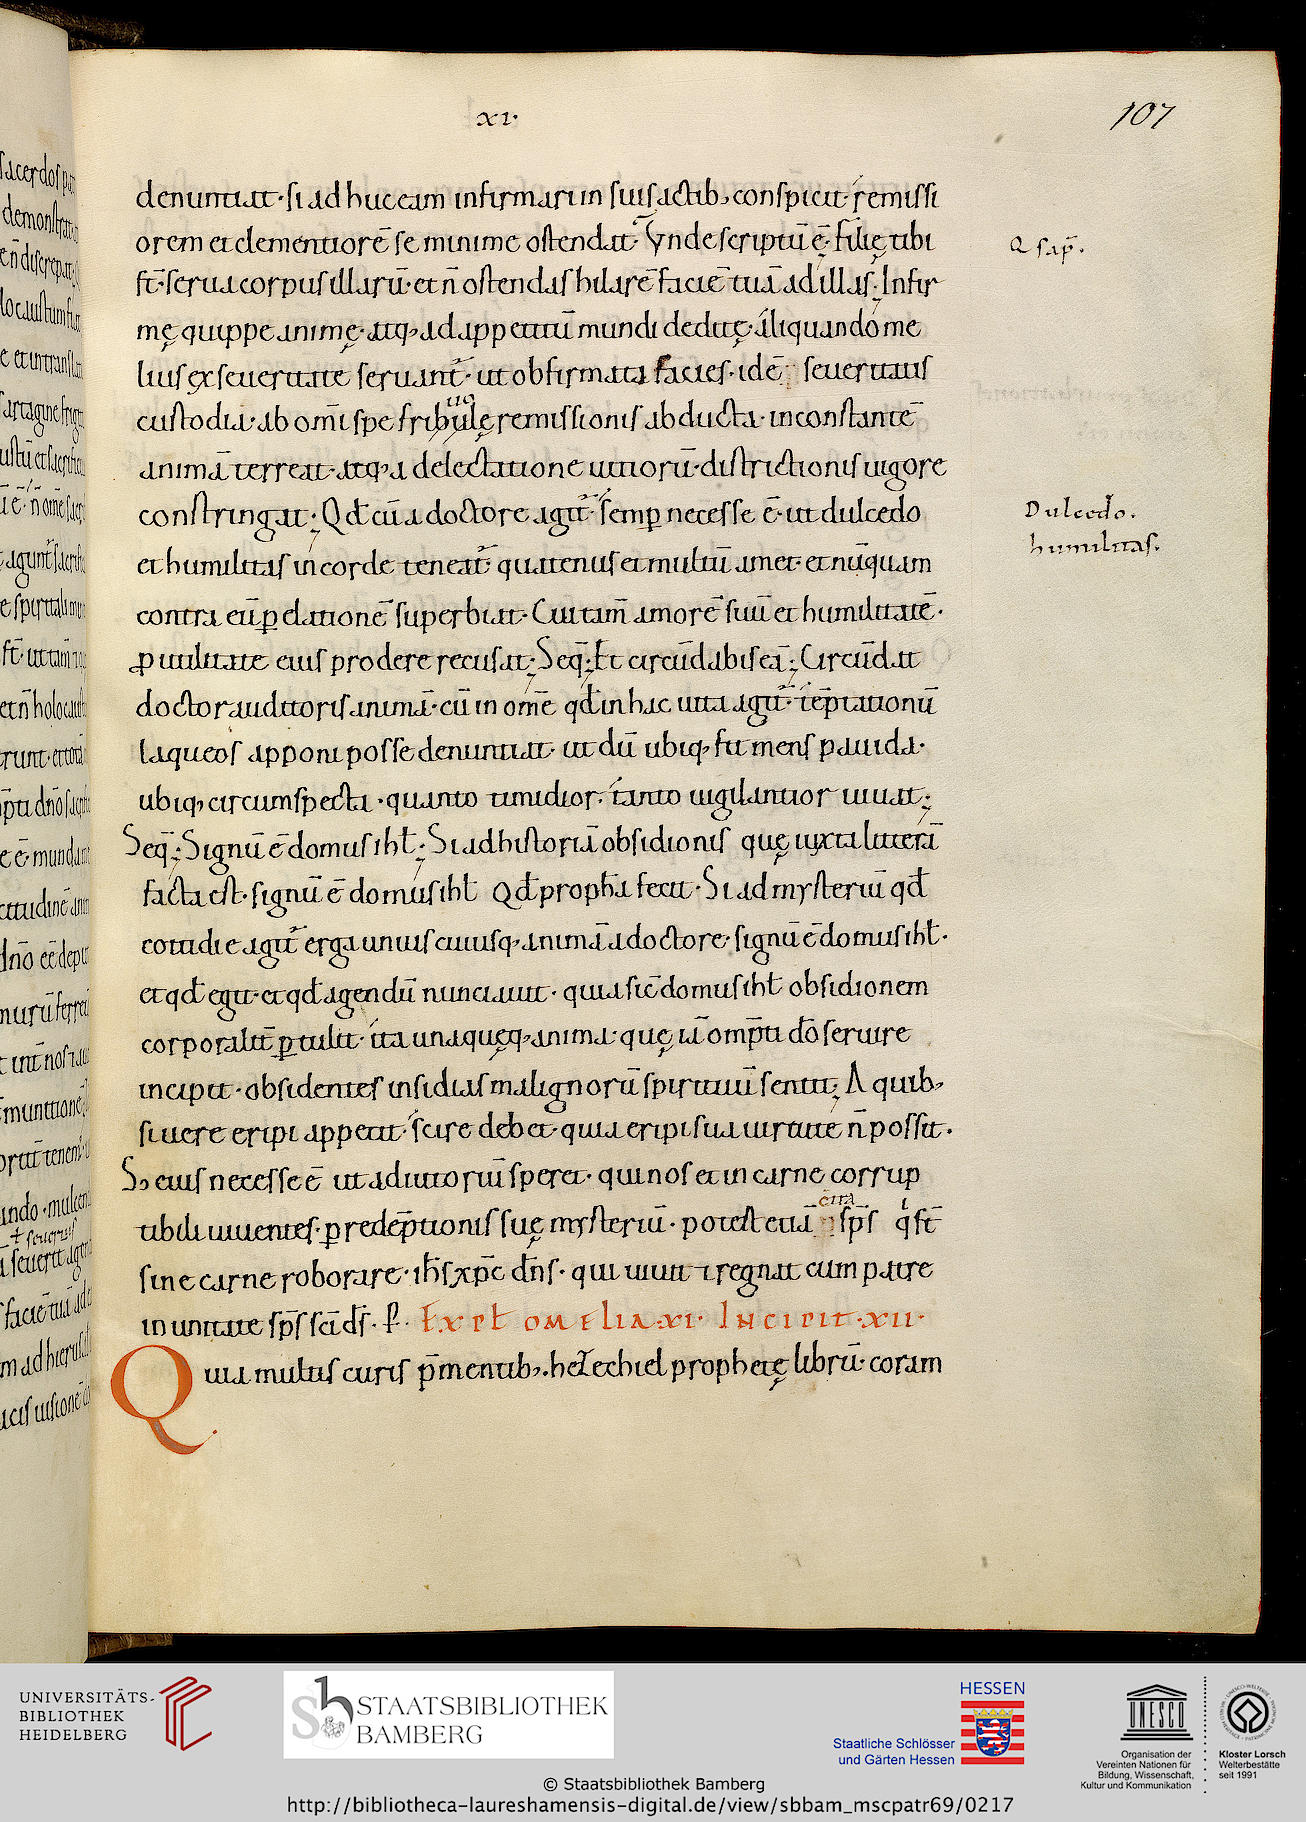 xi·
107
denuntiat· si adhuc eam infirmari in suis actib; conspicit· remissi
orem et clementiorē se minime ostendat· Vnde scriptū ē· Filię tibi
st̄· serua corpus illarū· et n̄ ostendas hilarē faciē tuā ad illas; Infir
mę quippe animę· atq; ad appetitū mundi deditę· aliquando me
lius ex seueritate seruant̄· ut obfirmata facies· idē seueritatis
custodia· ab om̄i spe fribulę remissionis abducta· inconstantē
uo
animā terreat· atq; a delectatione uitiorū· districtionis uigore
constringat; Qd̄ cū a doctore agit̄· semꝑ necesse ē· ut dulcedo
et humilitas in corde teneat̄· quatenus et multū amet· et nūquam
contra eū ꝑ elationē superbiat· Cui tam̄ amorē suū et humilitatē·
ꝓ utilitate eius prodere recusat; Seq̄; Et circūdabis eā; Circūdat
doctor auditoris animā· cū in om̄e qd̄ in hac uita agit̄· tēptationū
laqueos apponi posse denuntiat· ut dū ubiq; fit mens pauida·
ubiq; circumspecta· quanto timidior· tanto uigilantior uiuat;
Seq̄; Signū ē domus isrl̄; Si ad historiā obsidionis quę iuxta litterā
facta est· signū ē domus isrl̄ Qd̄ proph̄a fecit· Si ad mysteriū qd̄
cotidie agit̄ erga unius cuiusq; animā a doctore· signū ē domus isrl̄·
et qd̄ egit· et qd̄ agendū nunciauit· quia sic̄ domus isrl̄ obsidionem
corporalit̄ ꝑtulit· ita unaquęq; anima· quę iā omp̄ti dō seruire
incipit· obsidentes insidias malignorū spirituū sentit; A quib;
si uere eripi appetit· scire debet· quia eripi sua uirtute n̄ possit·
S; eius necesse ē ut adiutoriū speret· qui nos et in carne corrup
tibili uiuentes· ꝑ redēptionis suę mysteriū· potest etiā sp̄s q̇ st̄
c̄tra
sine carne roborare· ih̄s xp̄c dn̄s· qui uiuit ⁊ regnat cum patre
in unitate sp̄s sc̄i ds̄· ꝑ· Expl̄ omelia·xi· Incipit·xii·
Quia multis curis p̄mentib;· hezechiel prophetę librū· coram
Q sap̄·
Dulcedo·
humilitas·
UNIVERSITÄTS-
BIBLIOTHEK
HEIDELBERG
STAATSBIBLIOTHEK
BAMBERG
HESSEN
Staatliche Schlösser
und Gärten Hessen
UNESCO
Organisation der
Vereinten Nationen für
Bildung, Wissenschaft,
Kultur und Kommunikation
Kloster Lorsch
Welterbestätte
seit 1991
© Staatsbibliothek Bamberg
http://bibliotheca-laureshamensis-digital.de/view/sbbam_mscpatr69/0217